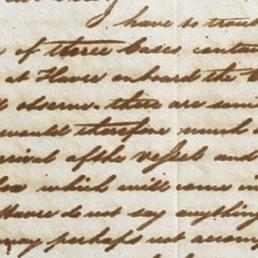 have to trou
of three Cases conta
at Havre onboard the
observe. there are some
would therefore much
rrival of the vessel and
which will come in
Havre do not say anything
may perhaps not accom